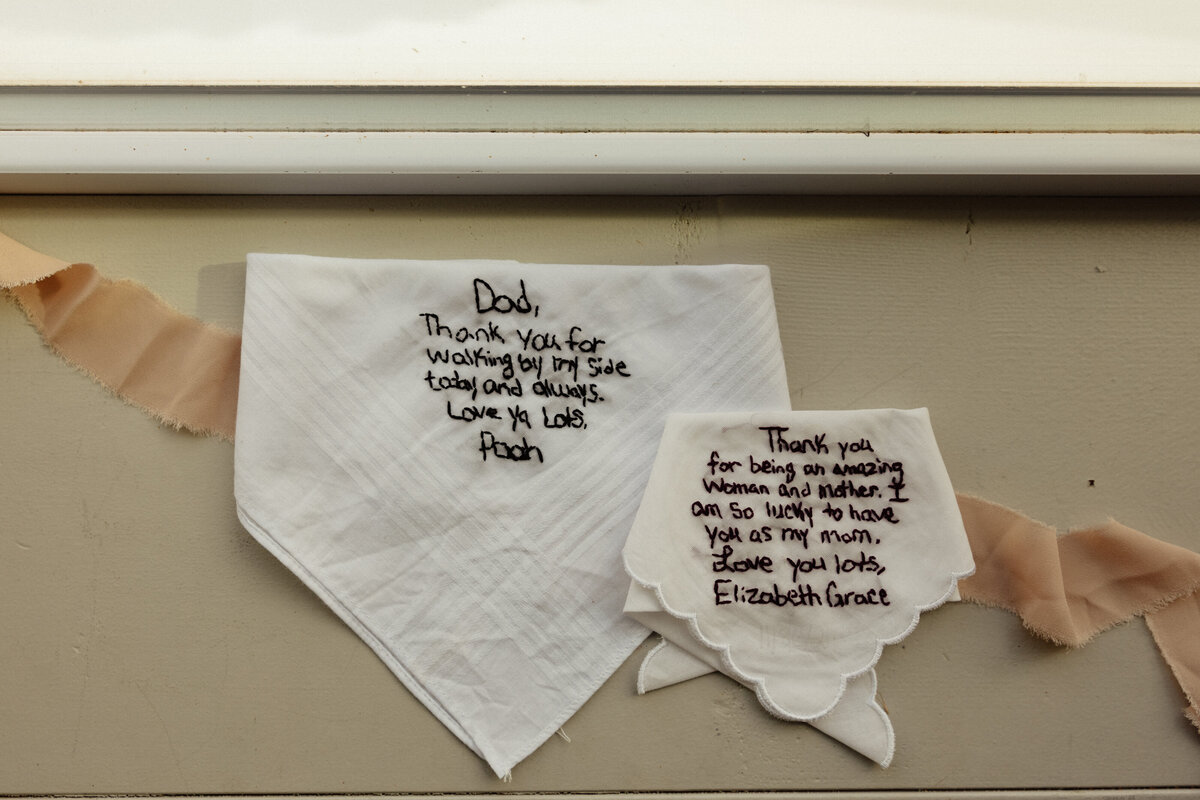 Dad,
Thank you for
walking by my side
today and always.
Love ya Lots,
Pooh
Thank you
for being an amazing
Woman and mother. I
am so lucky to have
you as my mom.
Love you lots,
Elizabeth Grace